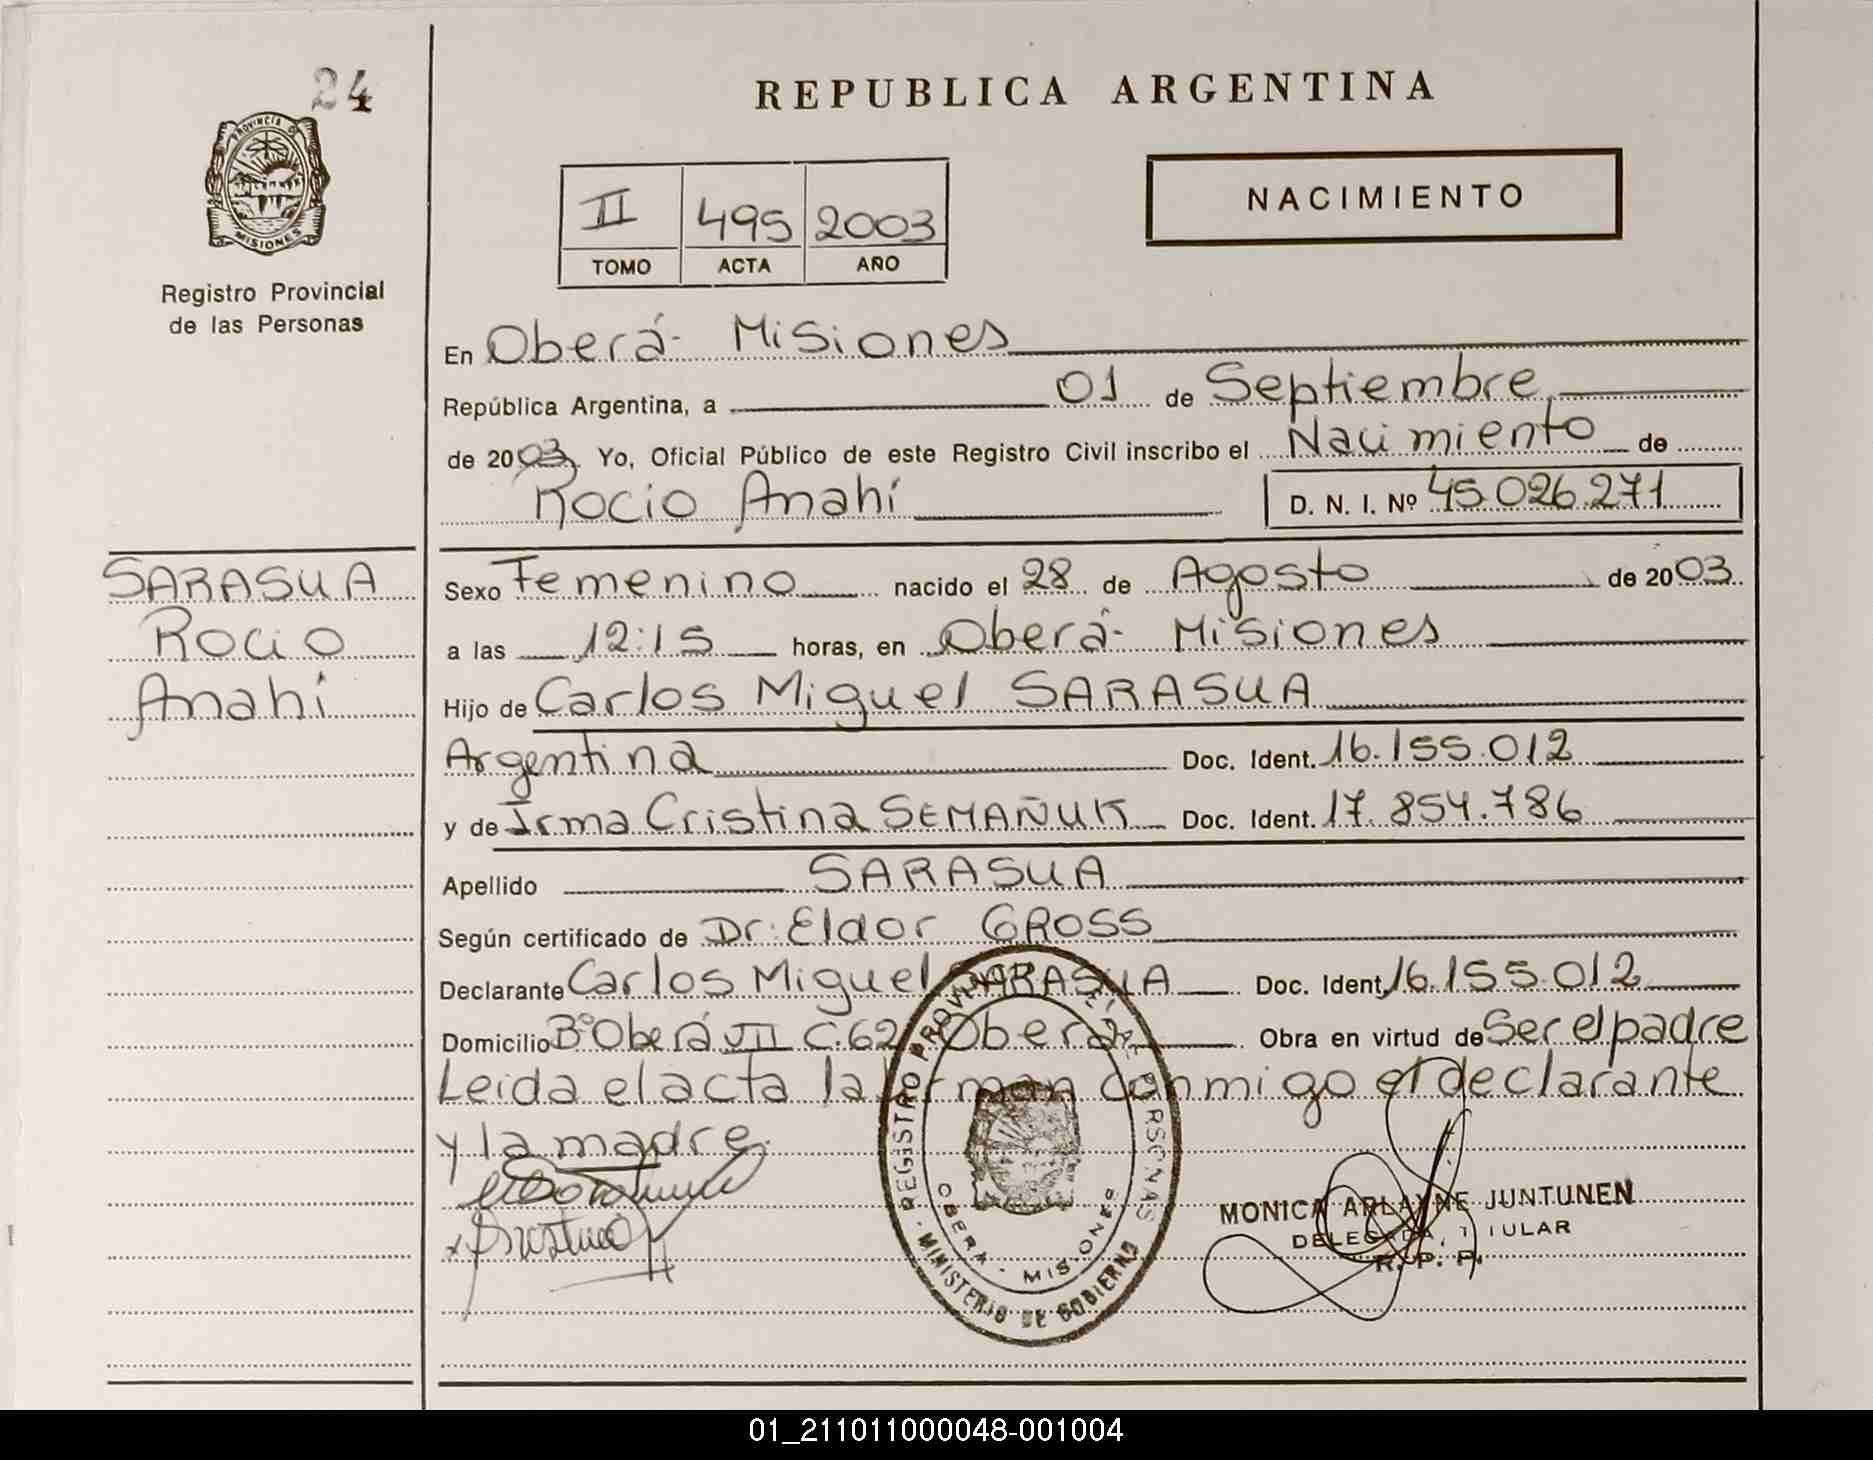 24
PROVINCIA DE
MISIONES
Registro Provincial
de las Personas
REPUBLICA ARGENTINA
NACIMIENTO
II 495 2003
TOMO ACTA AÑO
En Oberá- Misiones
República Argentina, a 01 de Septiembre
de 2003, Yo, Oficial Público de este Registro Civil inscribo el Nacimiento de
Rocio Anahí D. N. I. Nº 45.026.271
SARASUA
Rocio
Anahí
Sexo Femenino nacido el 28 de Agosto de 2003
a las 12:15 horas, en Oberá- Misiones
Hijo de Carlos Miguel SARASUA
Argentina Doc. Ident. 16.155.012
y de Irma Cristina SEMAÑUK Doc. Ident. 17.854.786
Apellido SARASUA
Según certificado de Dr. Eldor GROSS
Declarante Carlos Miguel SARASUA Doc. Ident. 16.155.012
Domicilio Bº Oberá VII C.62 Oberá Obra en virtud de Ser el padre
Leida el acta la firman conmigo el declarante
y la madre.
REGISTRO PROVINCIAL DE LAS PERSONAS
OBERA - MISIONES
MINISTERIO DE GOBIERNO
MONICA ARLAYNE JUNTUNEN
DELEGADA TITULAR
R. P. P.
01_211011000048-001004